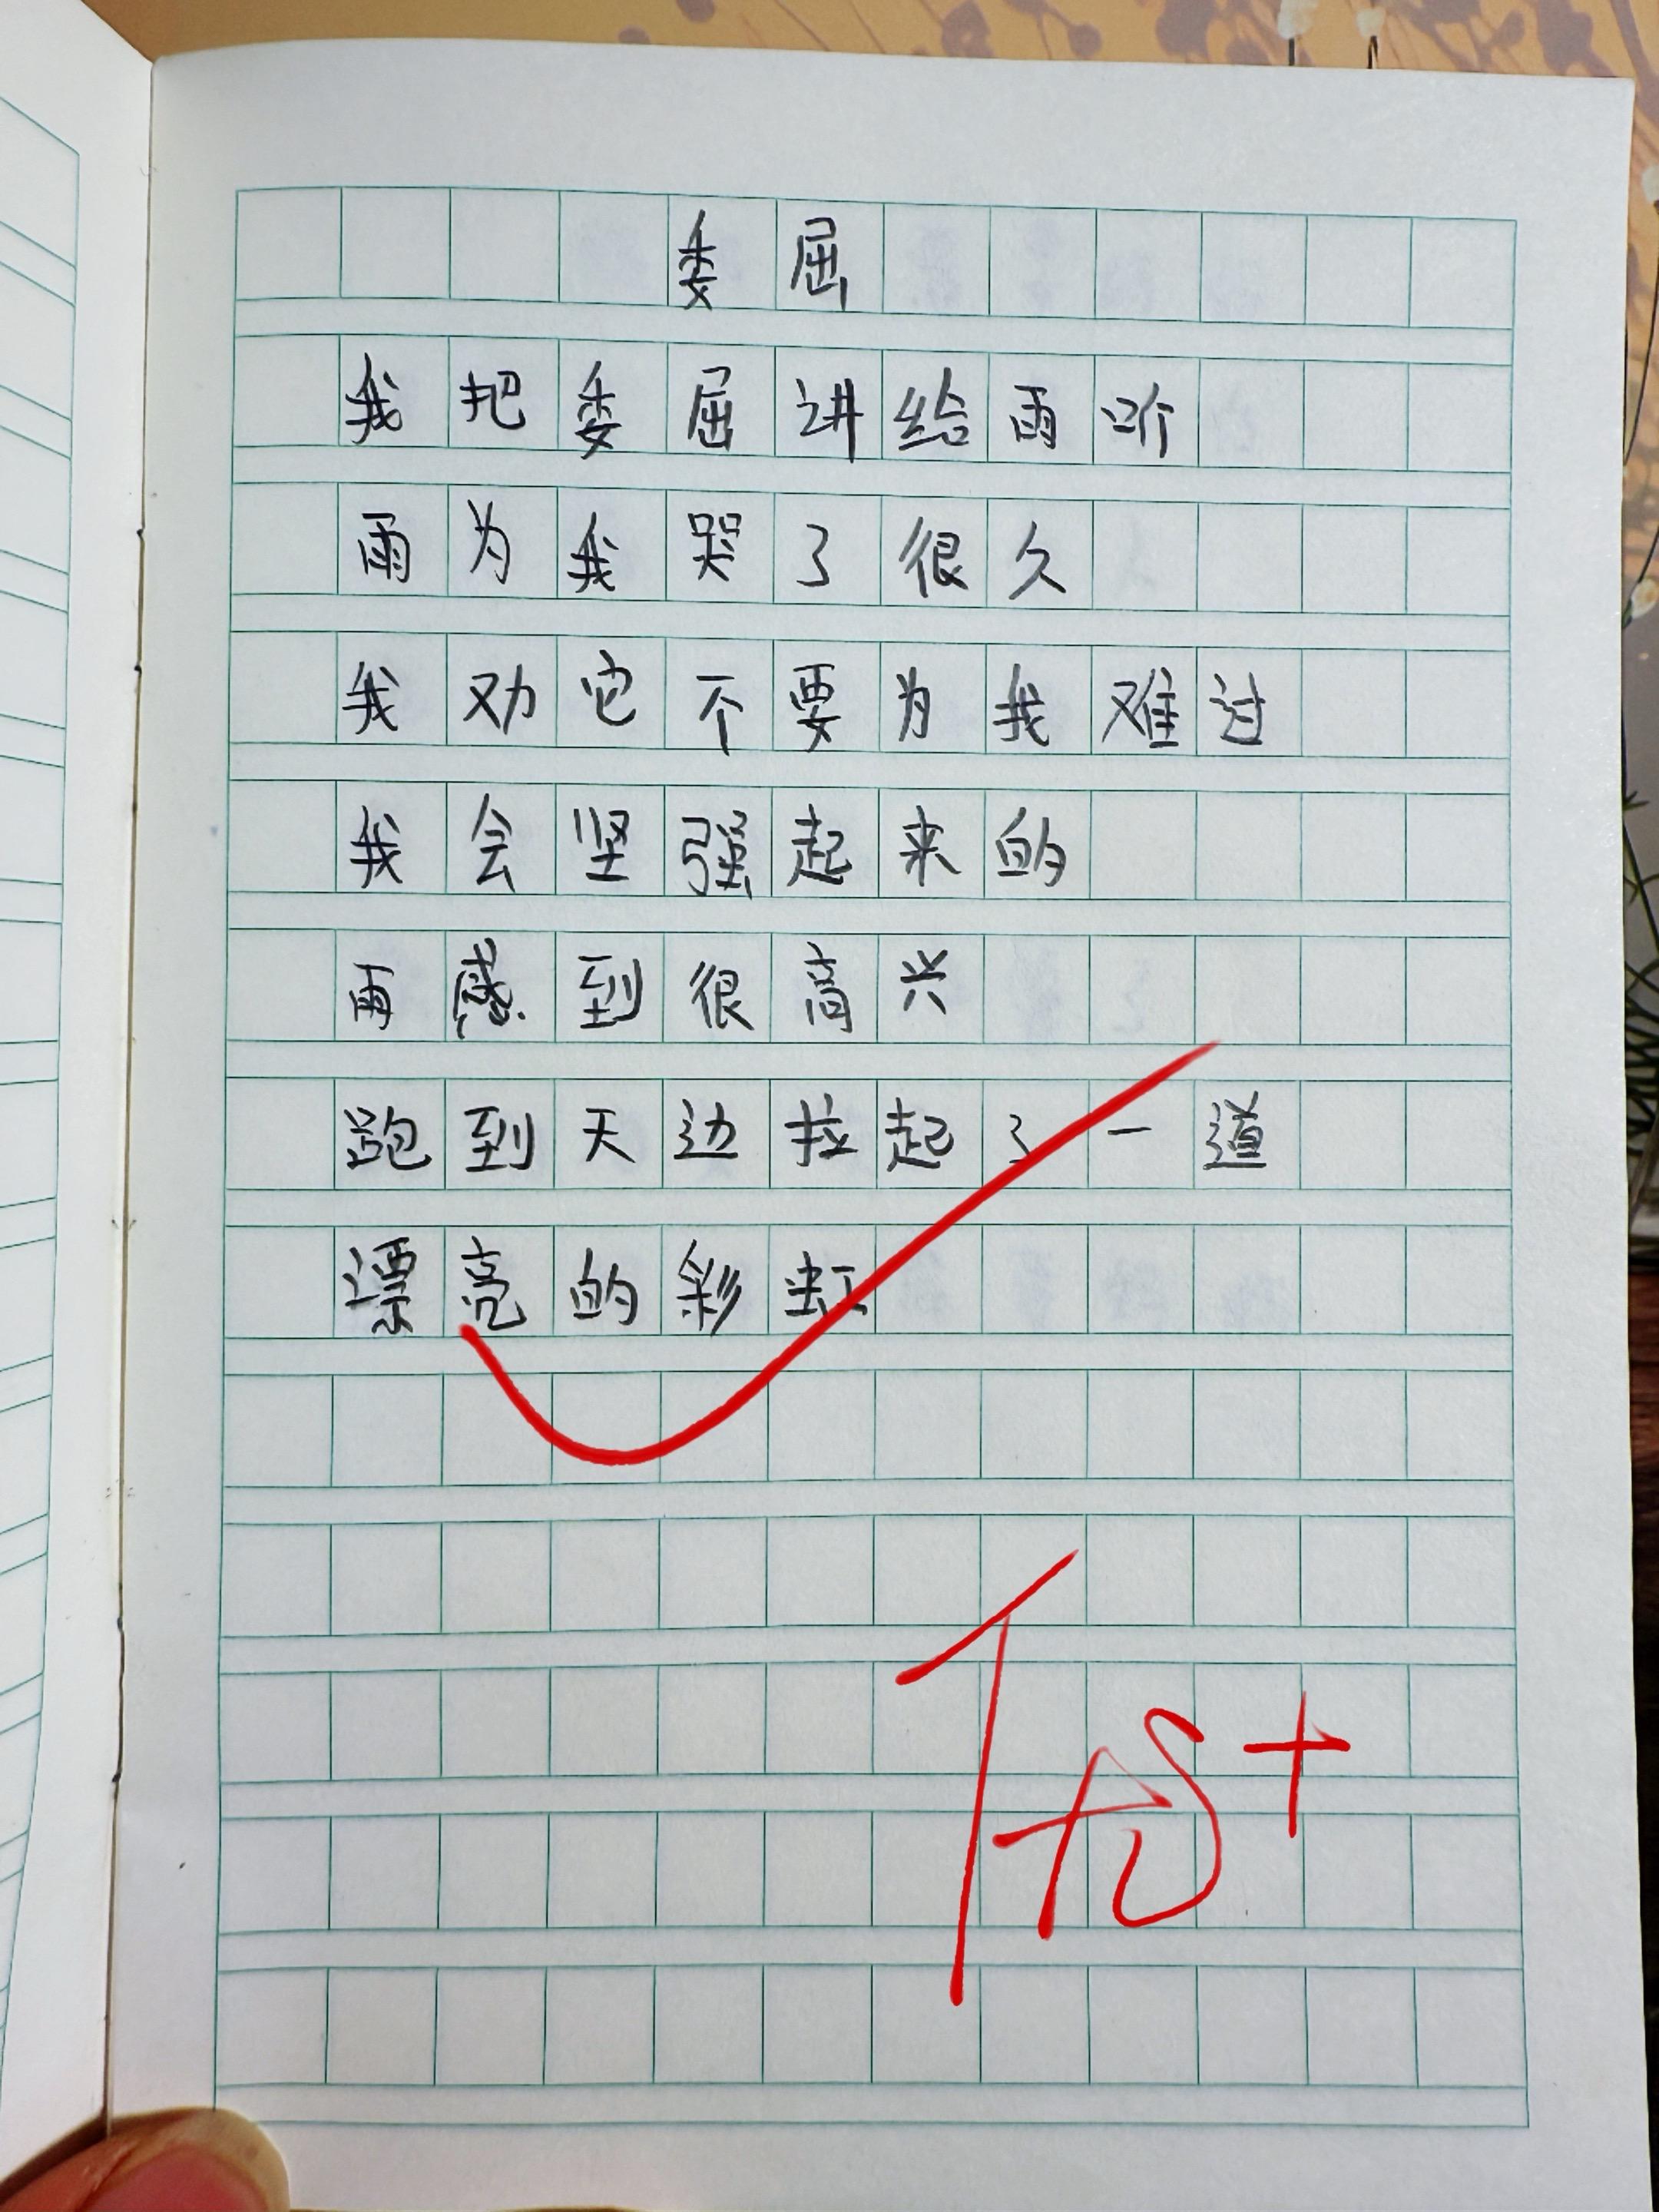 委屈
我把委屈讲给雨听
雨为我哭了很久
我劝它不要为我难过
我会坚强起来的
雨感到很高兴
跑到天边拉起了一道
漂亮的彩虹